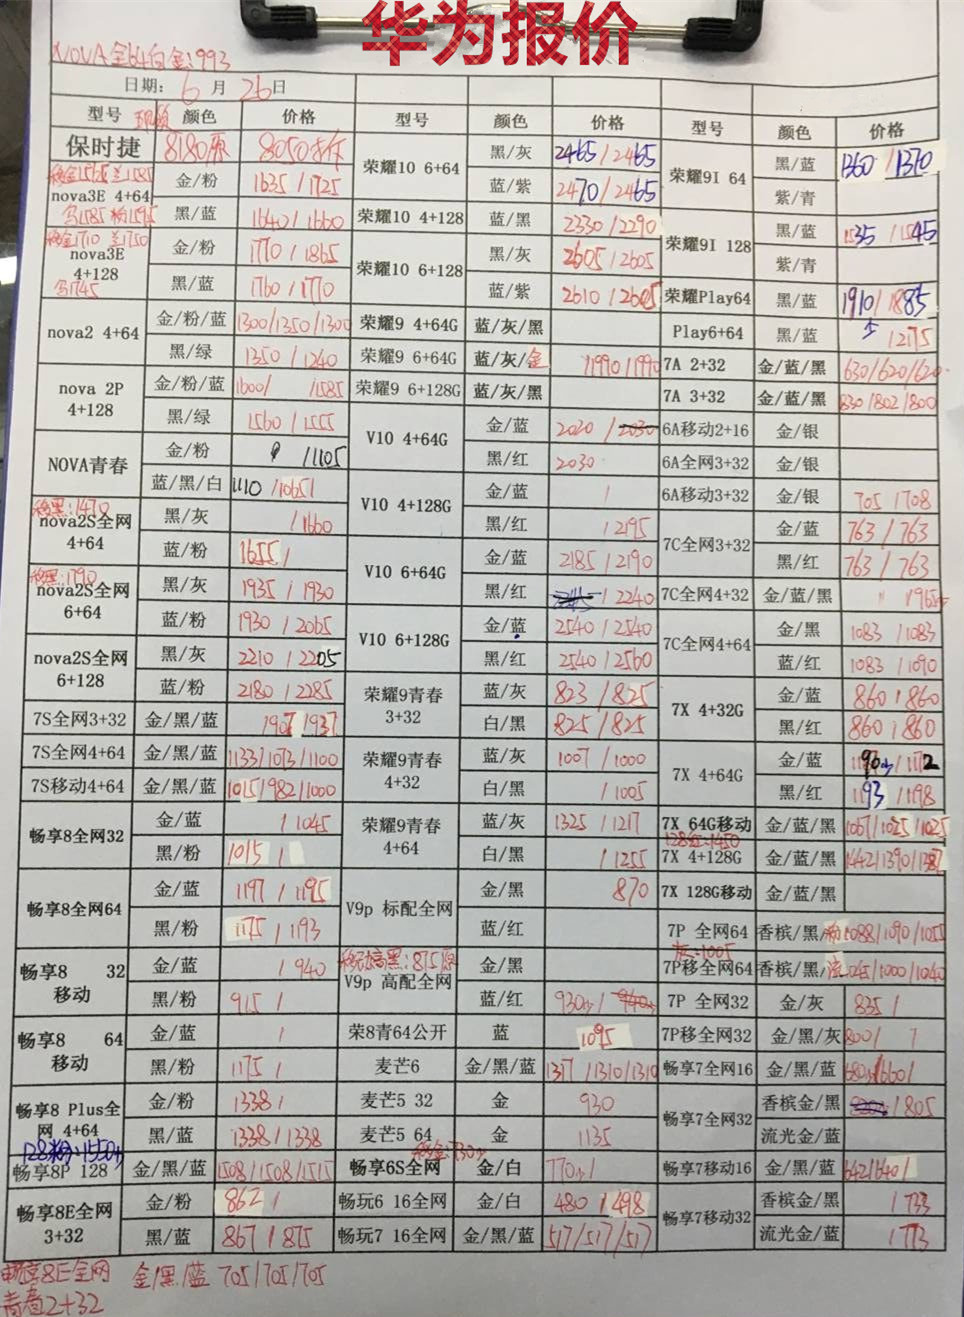 华为报价
NOVA全64白金:993
日期: 6 月 26日
型号 现货 颜色 价格 型号 颜色 价格 型号 颜色 价格
保时捷 8180原 8050
荣耀10 6+64 黑/灰 2465/2465
蓝/紫 2470/2465
荣耀9I 64 黑/蓝 1360/1370
紫/青
nova3E 4+64 金/粉 1635/1725
黑/蓝 1640/1660
荣耀10 4+128 蓝/黑 2330/2290
荣耀9I 128 黑/蓝 1535/1545
紫/青
移金1710 兰1750
nova3E 4+128 金/粉 1770/1865
黑/蓝 1760/1770
荣耀10 6+128 黑/灰 2605/2605
蓝/紫 2610/2605
荣耀Play64 黑/蓝 1910/1885
nova2 4+64 金/粉/蓝 1300/1350/1300
黑/绿 1350/1240
荣耀9 4+64G 蓝/灰/黑
Play6+64 黑/蓝
荣耀9 6+64G 蓝/灰/金 1990/1990
7A 2+32 金/蓝/黑 630/620/620
nova 2P 4+128 金/粉/蓝 1600/ /1585
黑/绿 1560/1555
荣耀9 6+128G 蓝/灰/黑
7A 3+32 金/蓝/黑 830/802/800
V10 4+64G 金/蓝 2020/2030
黑/红 2030
6A移动2+16 金/银
NOVA青春 金/粉 /1105
蓝/黑/白 1110/1065/
6A全网3+32 金/银
V10 4+128G 金/蓝 /
黑/红 /2195
6A移动3+32 金/银 705/708
移黑:1470
nova2S全网 4+64 黑/灰 /1660
蓝/粉 1655/
7C全网3+32 金/蓝 763/763
黑/红 763/763
V10 6+64G 金/蓝 2185/2190
黑/红 /2240
移黑:1790
nova2S全网 6+64 黑/灰 1935/1930
蓝/粉 1930/2065
7C全网4+32 金/蓝/黑
V10 6+128G 金/蓝 2540/2540
黑/红 2540/2560
7C全网4+64 金/黑 1083/1083
蓝/红 1083/1090
nova2S全网 6+128 黑/灰 2210/2205
蓝/粉 2180/2285
荣耀9青春 3+32 蓝/灰 823/825
白/黑 825/825
7X 4+32G 金/蓝 860/860
黑/红 860/860
7S全网3+32 金/黑/蓝 1907/937
7S全网4+64 金/黑/蓝 1133/1073/1100
荣耀9青春 4+32 蓝/灰 1007/1000
白/黑 /1005
7X 4+64G 金/蓝
黑/红 1193/1198
7S移动4+64 金/黑/蓝 1015/982/1000
畅享8全网32 金/蓝 /1045
黑/粉 1015/
荣耀9青春 4+64 蓝/灰 1325/1217
白/黑 /1255
7X 64G移动 金/蓝/黑 1067/1025/1025
128红:1450
7X 4+128G 金/蓝/黑 1442/1390/1387
畅享8全网64 金/蓝 1197/1195
黑/粉 1175/1193
V9p 标配全网 金/黑 870
蓝/红
7X 128G移动 金/蓝/黑
7P 全网64 香槟/黑/粉 1088/1090/1055
灰:1005
畅享8 32 移动 金/蓝 /940
黑/粉 915/
移动高黑:875原
V9p 高配全网 金/黑
蓝/红 930
7P移全网64 香槟/黑/流 /1000/1040
7P 全网32 金/灰 835/
畅享8 64 移动 金/蓝 /
黑/粉 1175/
荣8青64公开 蓝 1095
7P移全网32 金/黑/灰 800/
麦芒6 金/黑/蓝 1317/1310/1310
畅享7全网16 金/黑/蓝
畅享8 Plus全网 4+64 金/粉 1338/
黑/蓝 1338/1338
麦芒5 32 金 930
畅享7全网32 香槟金/黑 /805
流光金/蓝
麦芒5 64 金 1135
128粉:1550
畅享8P 128 金/黑/蓝 1508/1508/1515
畅享6S全网 金/白
畅享7移动16 金/黑/蓝 642/640/
畅享8E全网 3+32 金/粉 862/
黑/蓝 867/875
畅玩6 16全网 金/白 480/498
畅享7移动32 香槟金/黑 /733
流光金/蓝 /773
畅玩7 16全网 金/黑/蓝 517/517/517
畅享8E全网 金/黑/蓝 705/705/705
青春2+32